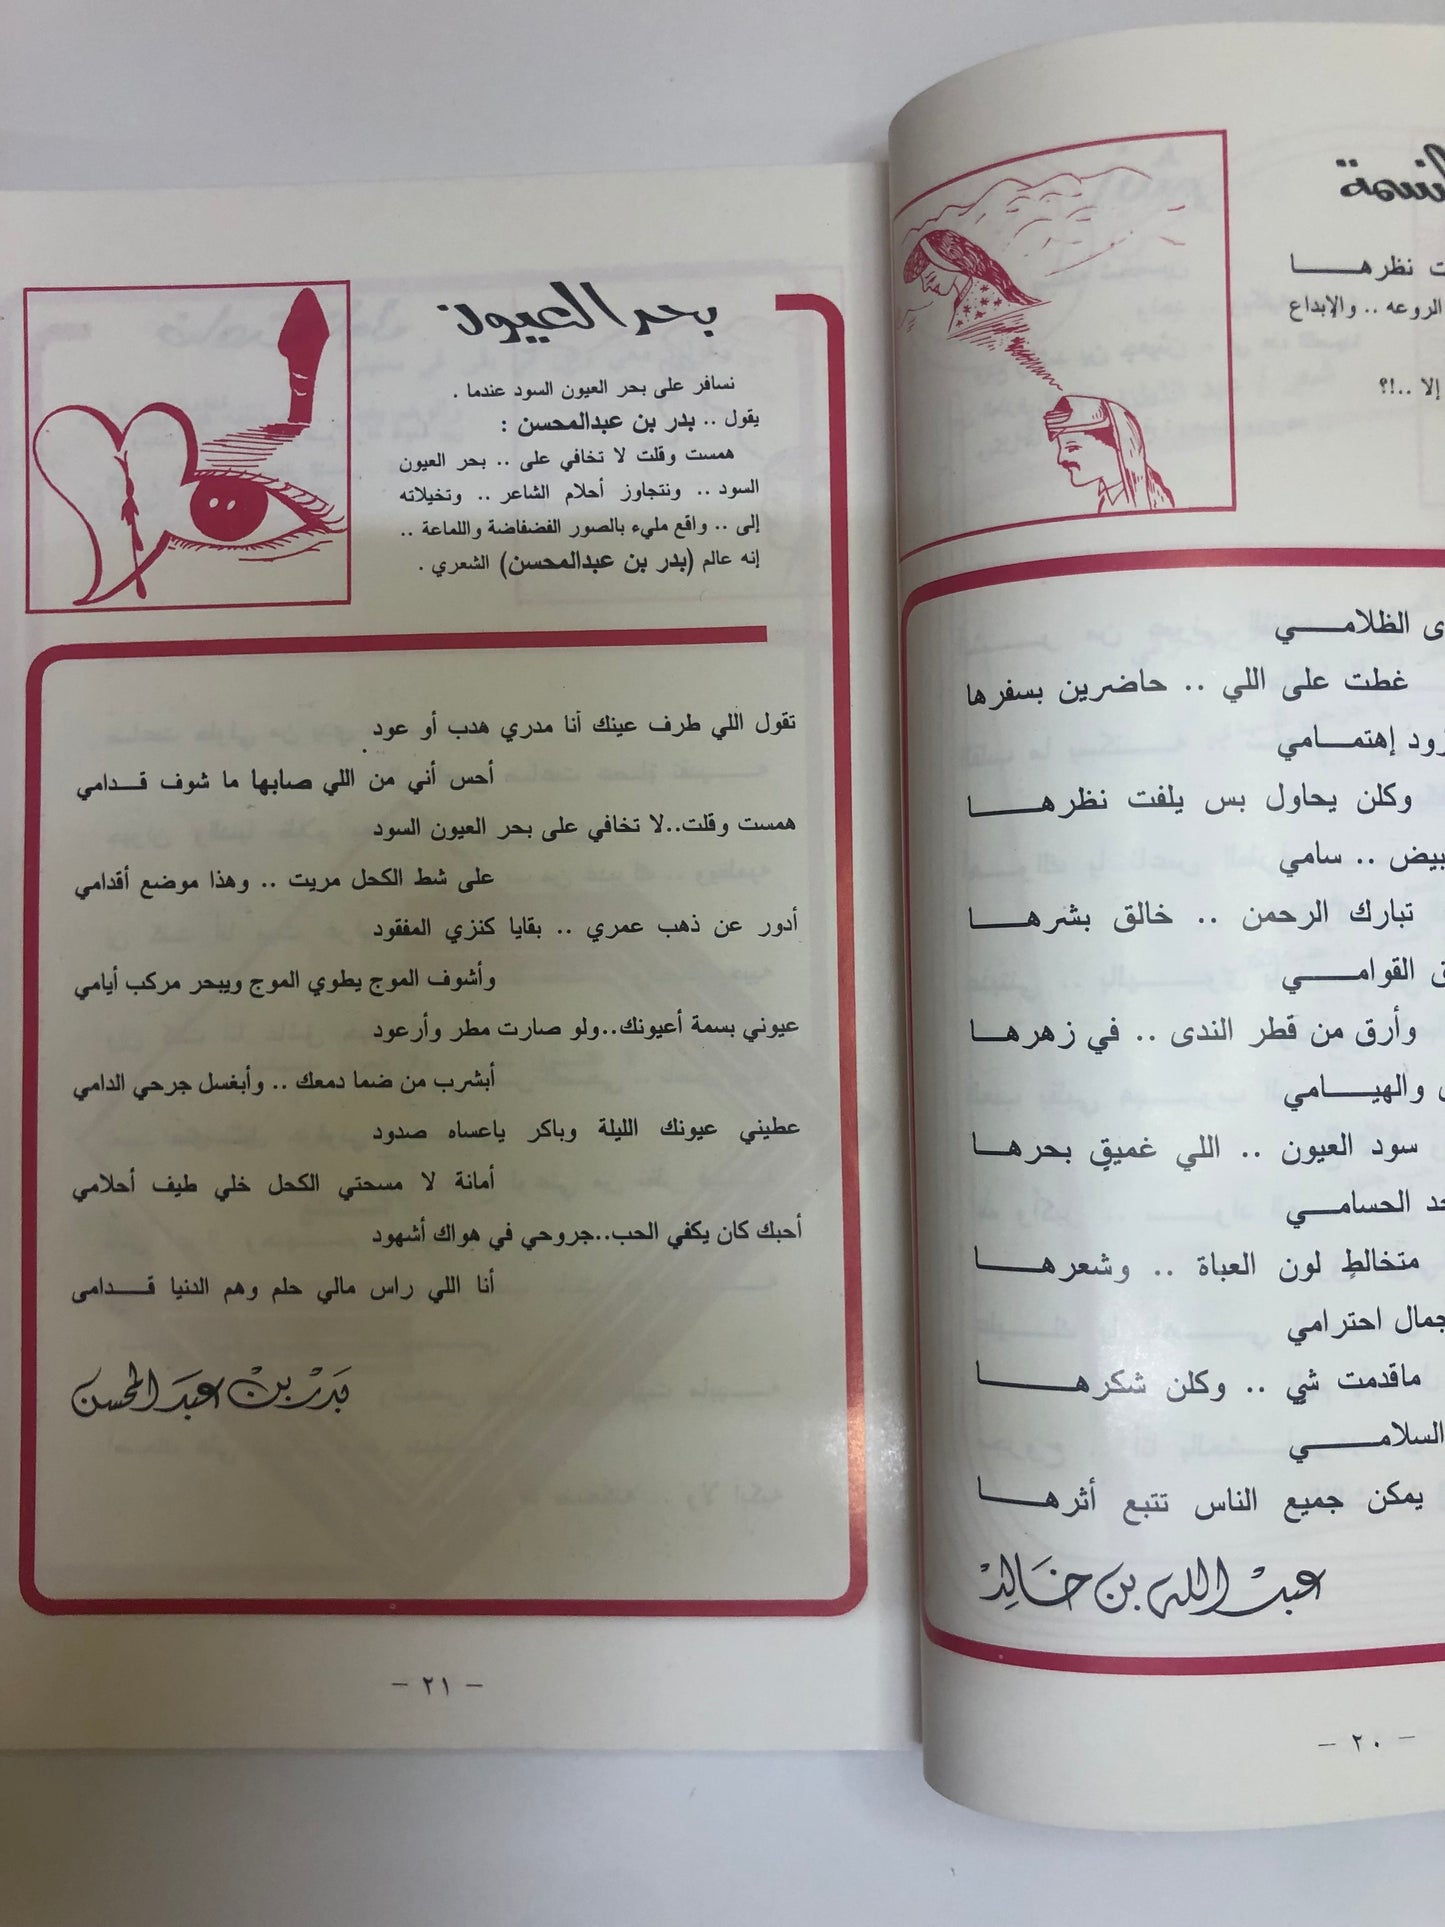 النسمة
ت نظرهـــــا
الروعه .. والإبداع
إلا ..!؟
ى الظلامـــــي
غطت على اللي .. حاضرين بسفرها
زود إهتمـــامي
وكلن يحاول بس يلفت نظرهـــــا
بيض .. سامي
تبارك الرحمن .. خالق بشرهـــــا
ق القوامـــــي
وأرق من قطر الندى .. في زهرها
ى والهيـــامي
سود العيون .. اللي غميقٍ بحرها
حد الحسامـــي
متخالطٍ لون العباة .. وشعرهـــا
جمال احترامي
ماقدمت شي .. وكلن شكرهـــــا
السلامـــــي
يمكن جميع الناس تتبع أثرهـــــا
عبد الله بن خالد
– ٢٠ –
بحر العيون
نسافر على بحر العيون السود عندما .
يقول .. بدر بن عبدالمحسن :
همست وقلت لا تخافي على .. بحر العيون
السود .. ونتجاوز أحلام الشاعر .. وتخيلاته
إلى .. واقع مليء بالصور الفضفاضة واللماعة ..
إنه عالم (بدر بن عبدالمحسن) الشعري .
تقول اللي طرف عينك أنا مدري هدب أو عود
أحس أني من اللي صابها ما شوف قـــدامي
همست وقلت..لا تخافي على بحر العيون السود
على شط الكحل مريت .. وهذا موضع أقدامي
أدور عن ذهب عمري .. بقايا كنزي المفقود
وأشوف الموج يطوي الموج ويبحر مركب أيامي
عيوني بسمة أعيونك..ولو صارت مطر وأرعود
أبشرب من ضما دمعك .. وأبغسل جرحي الدامي
عطيني عيونك الليلة وباكر ياعساه صدود
أمانة لا مسحتي الكحل خلي طيف أحلامي
أحبك كان يكفي الحب..جروحي في هواك أشهود
أنا اللي راس مالي حلم وهم الدنيا قـــدامى
بدر بن عبد المحسن
– ٢١ –